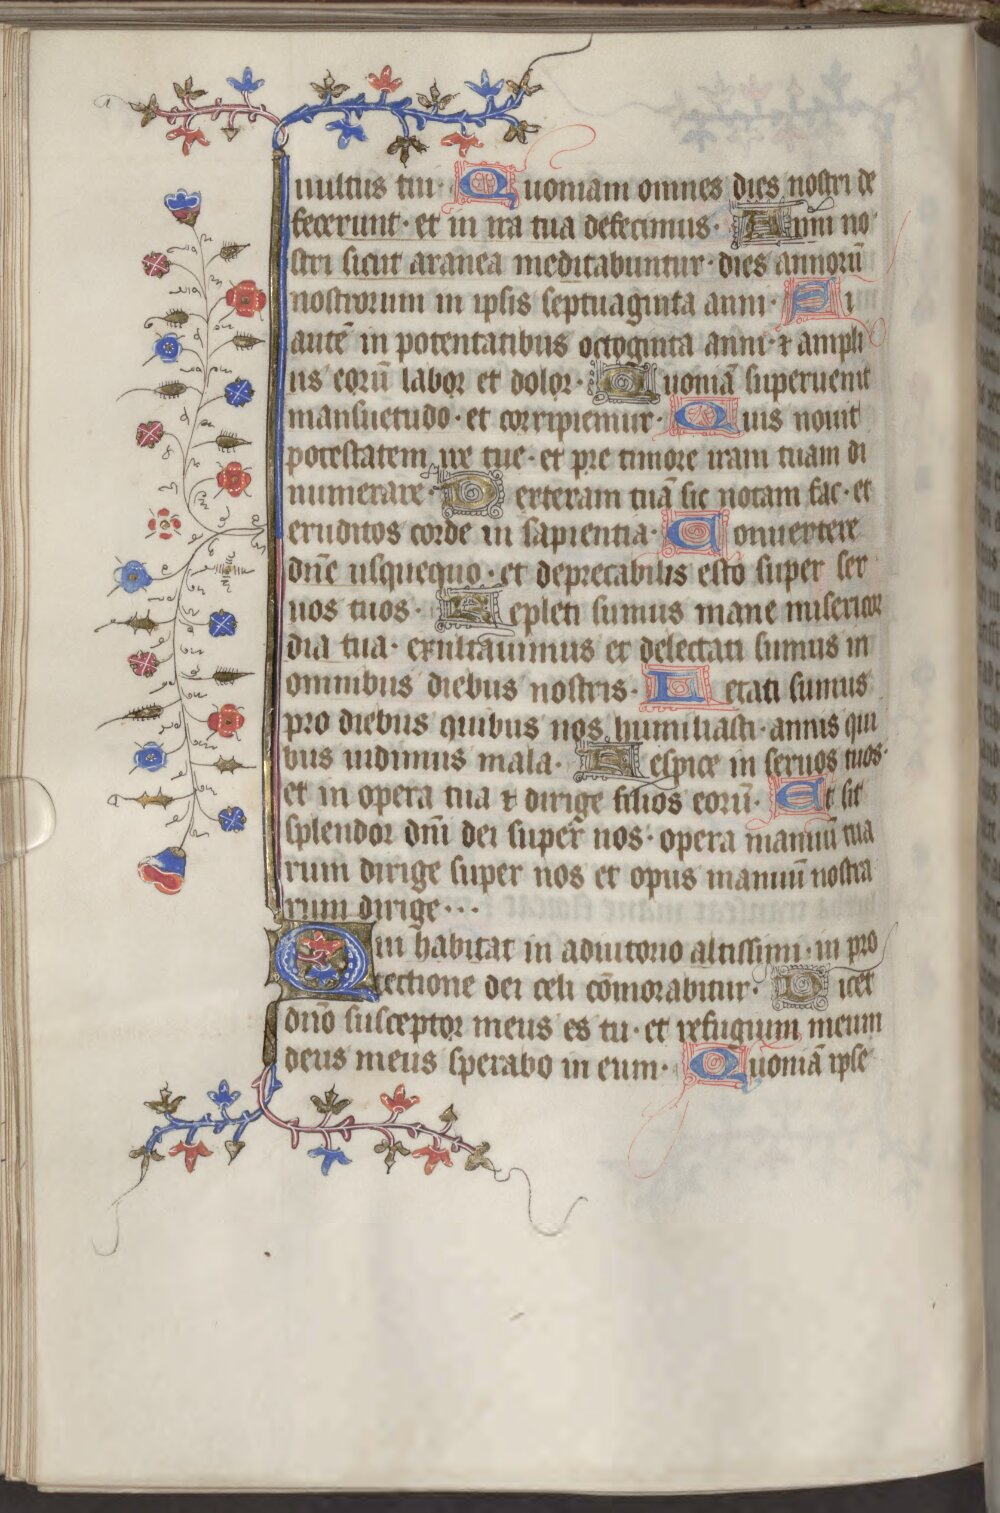 uultus tui· Quoniam omnes dies nostri de
fecerunt· et in ira tua defecimus· Anni no
stri sicut aranea meditabuntur· dies annorū
nostrorum in ipsis septuaginta anni· Si
autē in potentatibus octoginta anni· ⁊ ampli
us eorū labor et dolor· Quoniā superuenit
mansuetudo· et corripiemur· Quis nouit
potestatem ire tue· et pre timore iram tuam di
numerare· Dexteram tuā sic notam fac· et
eruditos corde in sapientia· Conuertere
dn̄e usquequo· et deprecabilis esto super ser
uos tuos· Repleti sumus mane misericor
dia tua· exultauimus et delectati sumus in
omnibus diebus nostris· Letati sumus
pro diebus quibus nos humiliasti· annis qui
bus uidimus mala· Respice in seruos tuos·
et in opera tua ⁊ dirige filios eorū· Et sit
splendor dn̄i dei super nos· opera manuū tua
rum dirige super nos et opus manuū nostra
rum dirige···
Qui habitat in adiutorio altissimi· in pro
tectione dei celi cōmorabitur· Dicet
dn̄o susceptor meus es tu· et refugium meum
deus meus sperabo in eum· Quoniā ipse